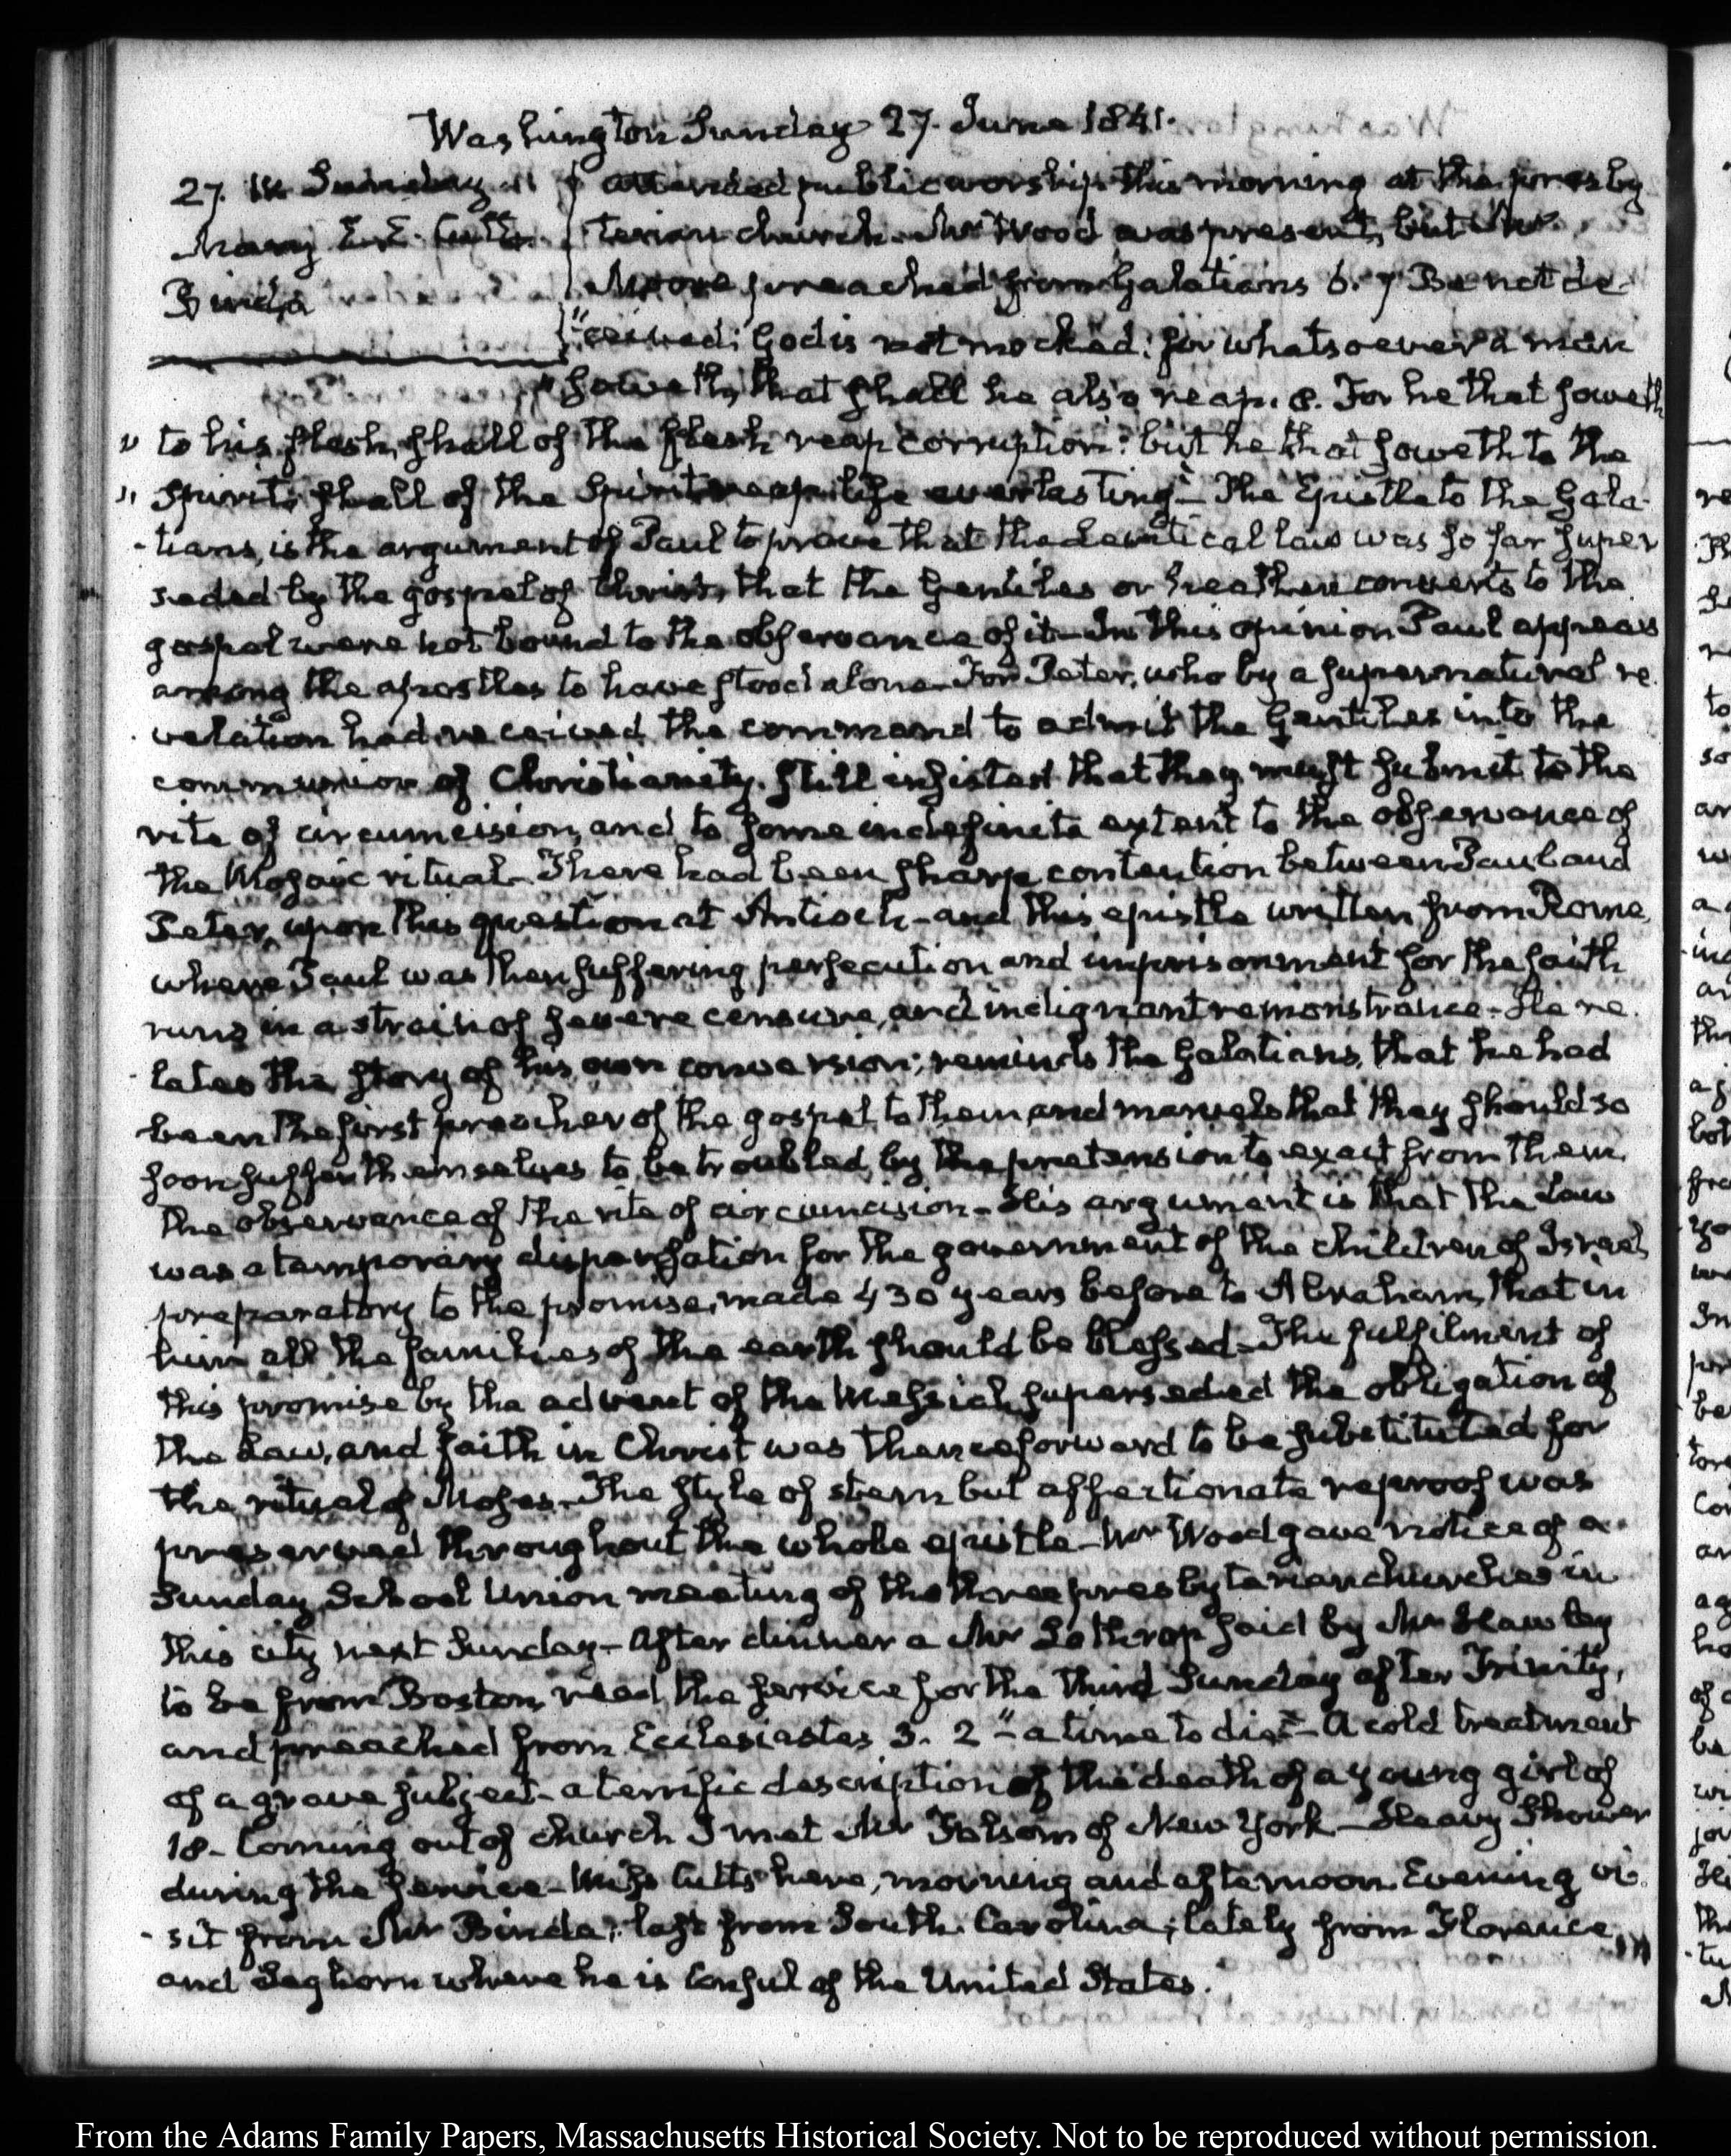 Washington Sunday 27. June 1841.
27. Sunday
Mary E. E. Cutts
Binda
attended public worship this morning at the presby
terian church. Mr Wood was present, but Mr
Moore preached from Galatians 6. 7 Be not de-
"ceived; God is not mocked: for whatsoever a man
"soweth, that shall he also reap. 8. For he that soweth
" to his flesh, shall of the flesh reap corruption: but he that soweth to the
" Spirit, shall of the Spirit reap life everlasting"— The Epistle to the Gala-
-tians, is the argument of Paul to prove that the Levitical law was so far super
seded by the gospel of Christ, that the Gentiles or heathen converts to the
gospel were not bound to the observance of it— In this opinion Paul appears
among the apostles to have stood alone— For Peter, who by a supernatural re.
velation had received the command to admit the Gentiles into the
communion of Christianity. still insisted that they must submit to the
rite of circumcision, and to some indefinite extent to the observance of
the Mosaic ritual— There had been sharp contention between Paul and
Peter, upon this question at Antioch— and this epistle written from Rome,
where Paul was then suffering persecution and imprisonment for the faith
runs in a strain of severe censure, and indignant remonstrance— He re.
-lates the story of his own conversion; reminds the Galatians, that he had
been the first preacher of the gospel to them and marvels that they should so
soon suffer themselves to be troubled by the pretension to exact from them
the observance of the rite of circumcision— His argument is that the Law
was a temporary dispensation for the government of the children of Israel,
preparatory to the promise, made 430 years before to Abraham, that in
him all the families of the earth should be blessed— The fulfilment of
this promise by the advent of the Messiah, superseded the obligation of
the Law, and faith in Christ was thenceforward to be substituted for
the ritual of Moses— The style of stern but affectionate reproof was
preserved throughout the whole epistle— Mr Wood gave notice of a
Sunday School Union meeting of the three presbyterian churches in
this city next Sunday— After dinner a Mr Lothrop said by Mr Hawley
to be from Boston, read the service for the third Sunday after Trinity,
and preached from Ecclesiastes 3. 2 "— a time to die"— A cold treatment
of a grave subject— a terrific description of the death of a young girl of
18— Coming out of church I met Mr Folsom of New York— Heavy Shower
during the service— Miss Cutts here, morning and afternoon. Evening vi.
- sit from Mr Binda; last from South Carolina; lately from Florence,
and Leghorn where he is Consul of the United States.
From the Adams Family Papers, Massachusetts Historical Society. Not to be reproduced without permission.